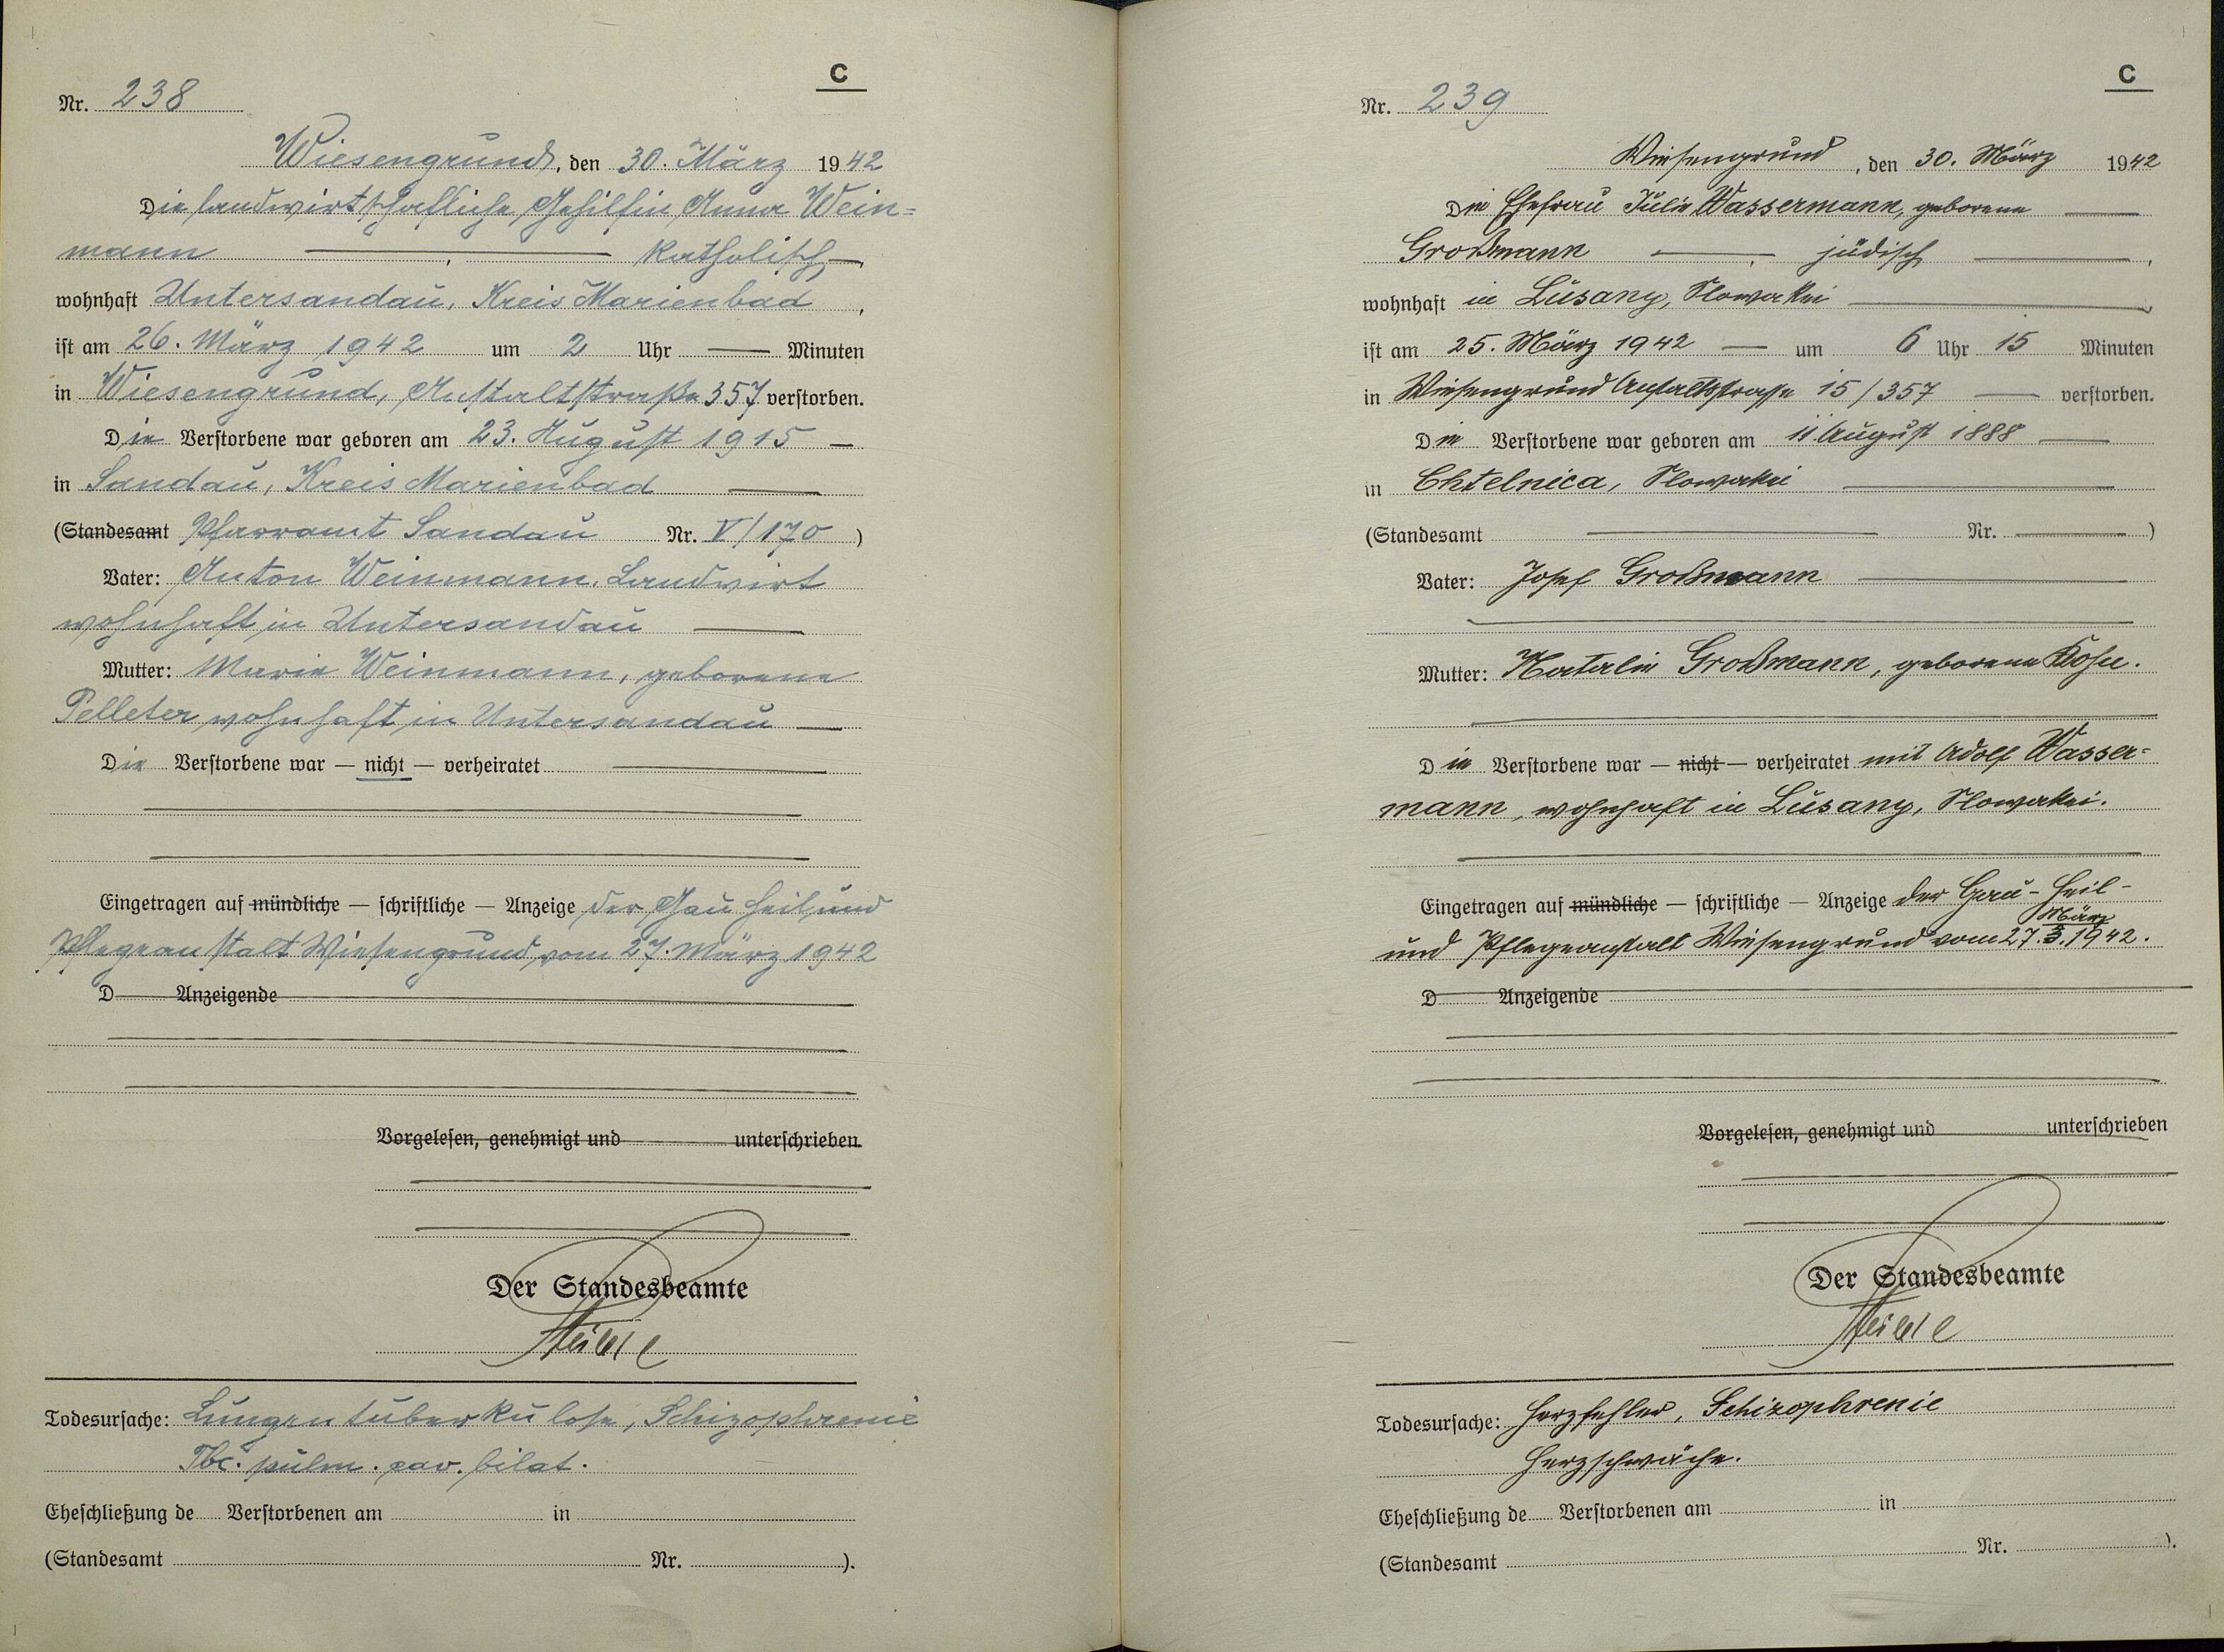 C
Nr. 238
Wiesengrund, den 30. März 1942
Die landwirtschaftliche Gehilfin Anna Wein=
mann katholisch,
wohnhaft Untersandau, Kreis Marienbad,
ist am 26. März 1942 um 2 Uhr Minuten
in Wiesengrund, Anstaltstraße 357 verstorben.
Die Verstorbene war geboren am 23. August 1915
in Sandau, Kreis Marienbad
(Standesamt Pfarramt Sandau Nr. V/170)
Vater: Anton Weinmann, Landwirt
wohnhaft in Untersandau
Mutter: Marie Weinmann, geborene
Pelleter wohnhaft in Untersandau
Die Verstorbene war — nicht — verheiratet
Eingetragen auf mündliche — schriftliche — Anzeige der Gau Heil und
Pflegeanstalt Wiesengrund vom 27. März 1942
D Anzeigende
Vorgelesen, genehmigt und unterschrieben
Der Standesbeamte
Todesursache: Lungentuberkulose, Schizophrenie
Tbc. pulm. cav. bilat.
Eheschließung de Verstorbenen am in
(Standesamt Nr. ).
C
Nr. 239
Wiesengrund, den 30. März 1942
Die Ehefrau Julie Wassermann, geborene
Großmann, jüdisch,
wohnhaft in Lusany, Slowakei,
ist am 25. März 1942 um 6 Uhr 15 Minuten
in Wiesengrund Anstaltsstrasse 15/357 verstorben.
Die Verstorbene war geboren am 11. August 1888
in Chtelnica, Slowakei
(Standesamt Nr. )
Vater: Josef Großmann
Mutter: Natalie Großmann, geborene Kohn.
Die Verstorbene war — nicht — verheiratet mit Adolf Wasser=
mann, wohnhaft in Lusany, Slowakei.
Eingetragen auf mündliche — schriftliche — Anzeige der Gau- Heil-
März
und Pflegeanstalt Wiesengrund vom 27. 3. 1942.
D Anzeigende
Vorgelesen, genehmigt und unterschrieben
Der Standesbeamte
Todesursache: Herzfehler, Schizophrenie
Herzschwäche.
Eheschließung de Verstorbenen am in
(Standesamt Nr. ).